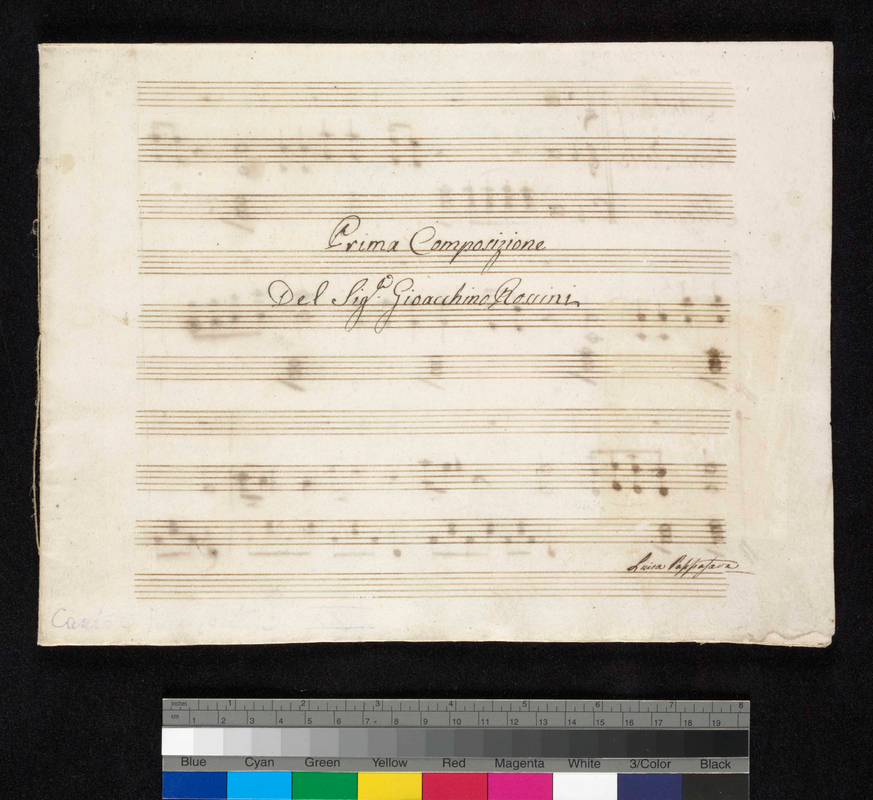 Prima Composizione
Del Sigr. Gioacchino Rossini
Luisa Pappafava
inches 1 2 3 4 5 6 7 8
cm 1 2 3 4 5 6 7 8 9 10 11 12 13 14 15 16 17 18 19
Blue Cyan Green Yellow Red Magenta White 3/Color Black